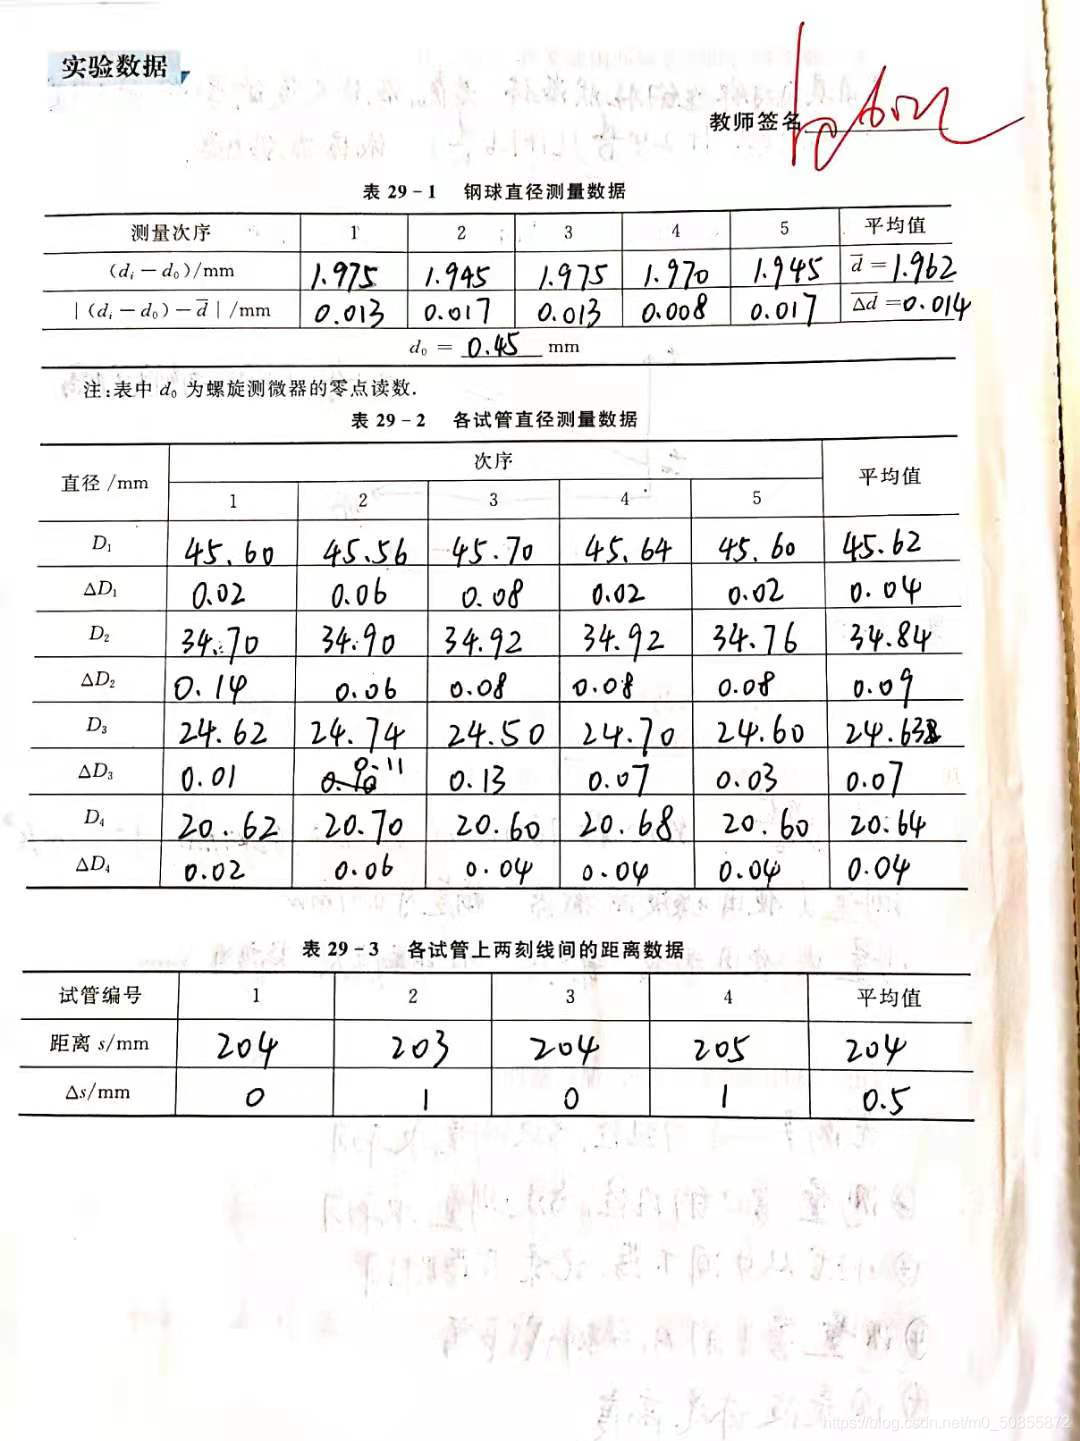 实验数据
教师签名
表 29-1 钢球直径测量数据
测量次序 1 2 3 4 5 平均值
(dᵢ - d₀)/mm 1.975 1.945 1.975 1.970 1.945 d̅ = 1.962
|(dᵢ - d₀) - d̅|/mm 0.013 0.017 0.013 0.008 0.017 Δ̅d̅ = 0.014
d₀ = 0.45 mm
注:表中 d₀ 为螺旋测微器的零点读数.
表 29-2 各试管直径测量数据
直径/mm 次序 平均值
1 2 3 4 5
D₁ 45.60 45.56 45.70 45.64 45.60 45.62
ΔD₁ 0.02 0.06 0.08 0.02 0.02 0.04
D₂ 34.70 34.90 34.92 34.92 34.76 34.84
ΔD₂ 0.14 0.06 0.08 0.08 0.08 0.09
D₃ 24.62 24.74 24.50 24.70 24.60 24.63
ΔD₃ 0.01 0.11 0.13 0.07 0.03 0.07
D₄ 20.62 20.70 20.60 20.68 20.60 20.64
ΔD₄ 0.02 0.06 0.04 0.04 0.04 0.04
表 29-3 各试管上两刻线间的距离数据
试管编号 1 2 3 4 平均值
距离 s/mm 204 203 204 205 204
Δs/mm 0 1 0 1 0.5
https://blog.csdn.net/m0_50855872